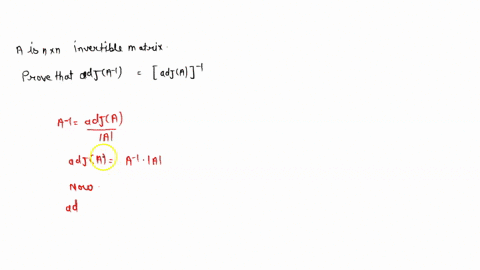 A is nxn invertible matrix.
Prove that adj(A⁻¹) = [adj(A)]⁻¹
A⁻¹ = adj(A) / |A|
adj(A) = A⁻¹ · |A|
Now
ad